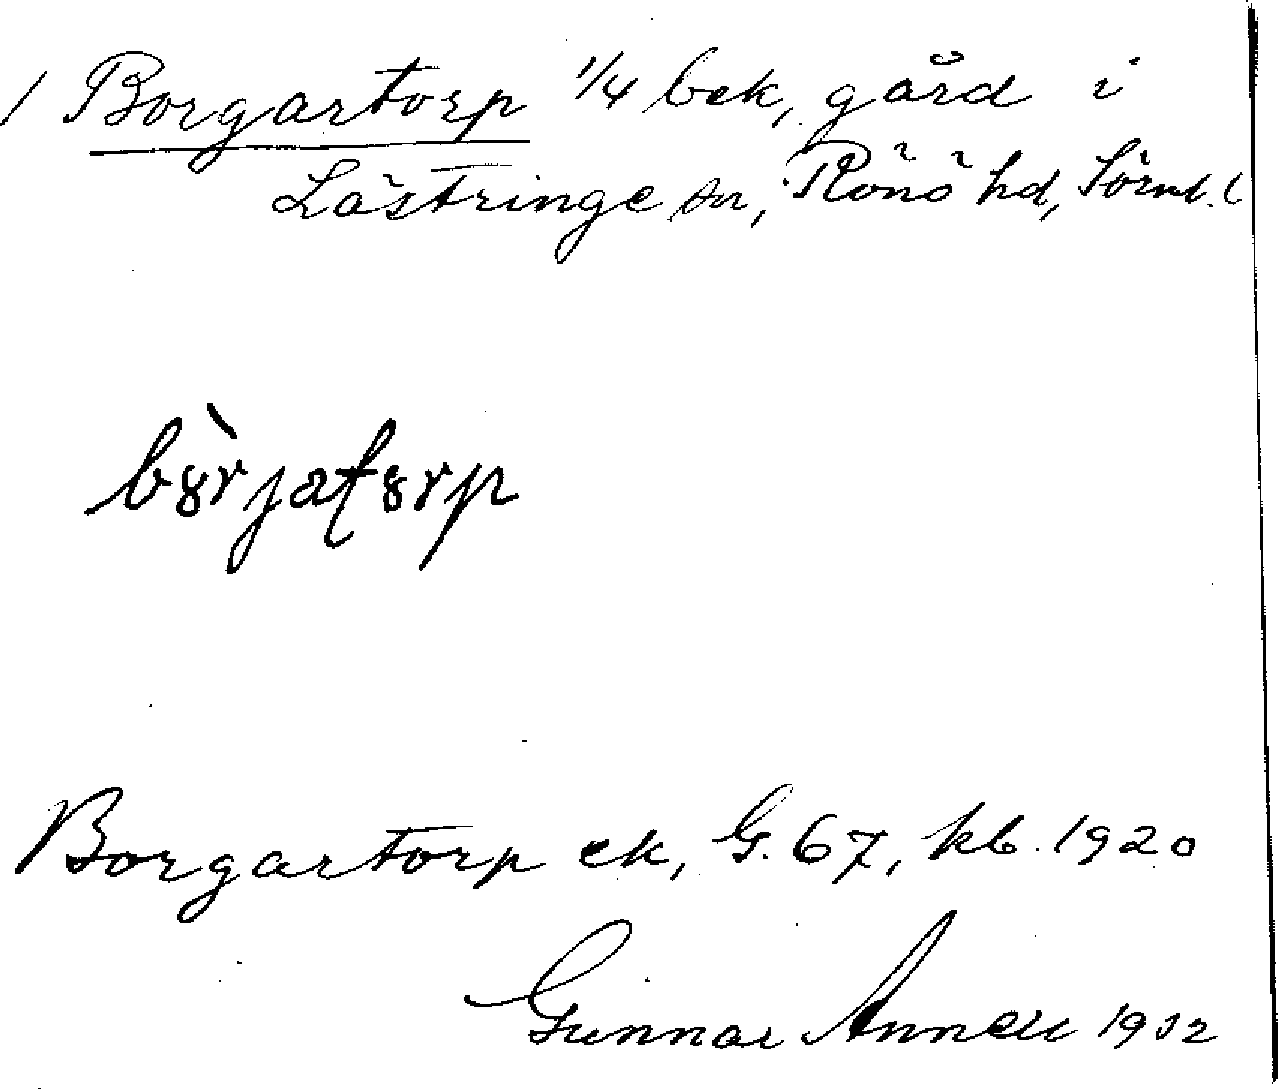 / Borgartorp 1/4 bek, gård i
Lästringe sn, Rönö hd, Sörml. l
bòrjatorp
Borgartorp ek, G. 67, kb. 1920
Gunnar Annell 1932